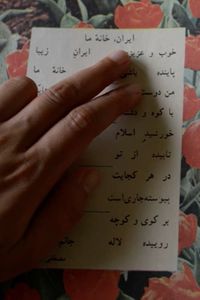 ایران، خانهٔ ما
خوب و عزیز ایرانِ زیبا
پاینده باشی خانهٔ ما
من دوست
با کوه و دشت
خورشیدِ اسلام
تابیده از تو
در هر کجایت
پیوسته جاری است
بر کوی و کوچه
روییده لاله جانم